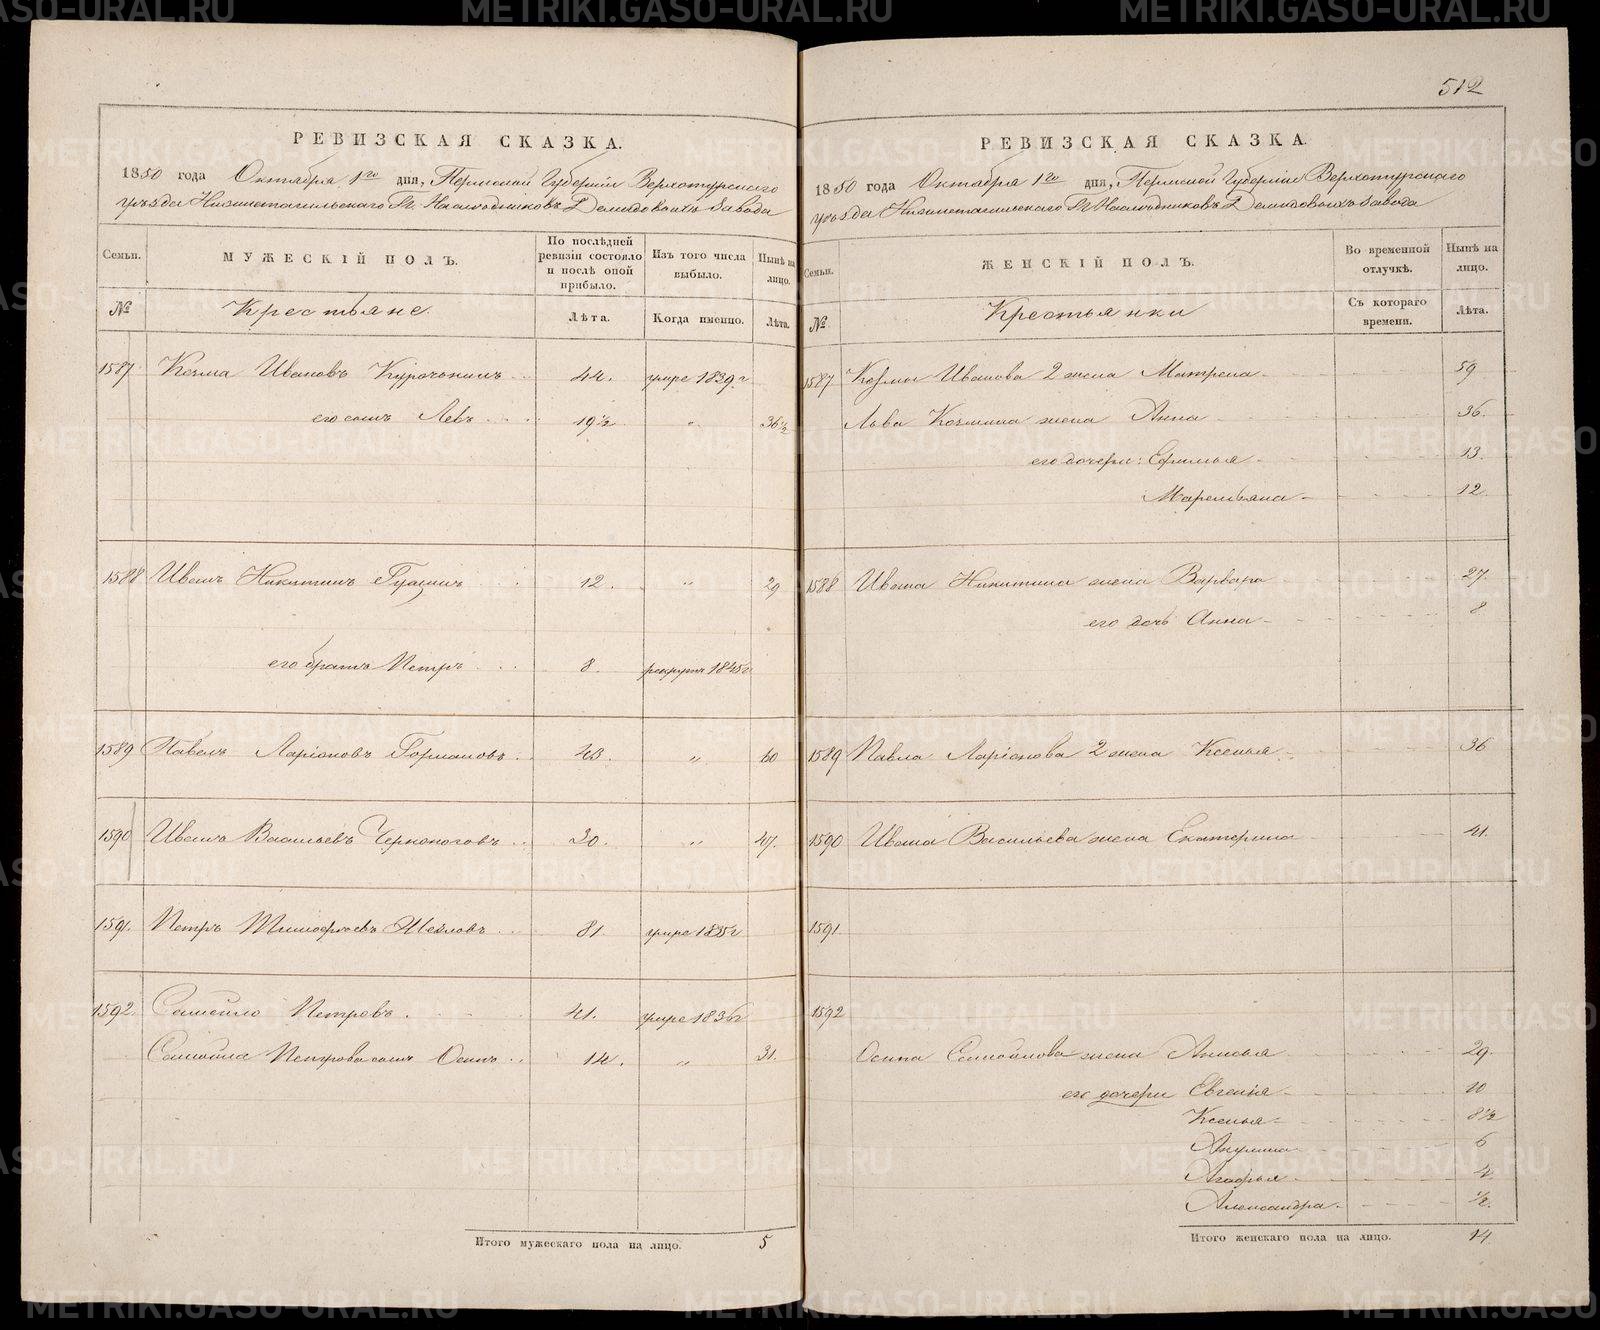 METRIKI.GASO-URAL.RU
512
РЕВИЗСКАЯ СКАЗКА.
1850 года Октября 1го дня, Пермской Губерніи Верхотурскаго
уѣзда Нижнетагильскаго Гг. Наслѣдниковъ Демидовыхъ Завода
Семьи.
МУЖЕСКІЙ ПОЛЪ.
По послѣдней ревизіи состояло и послѣ оной прибыло.
Изъ того числа выбыло.
Нынѣ на лицо.
№
Крестьяне.
Лѣта.
Когда именно.
Лѣта.
1587 Козма Ивановъ Курочкинъ 44. умре 1839 г
его сынъ Левъ 19½ " 36½
1588 Иванъ Никитинъ Гущинъ 12. " 29
его братъ Петръ 8. рекрутъ 1845 г
1589 Павелъ Ларіоновъ 43. " 60
1590 Иванъ Васильевъ Черноноговъ 30. " 47.
1591. Петръ Тимофѣевъ 81. умре 1835 г
1592. Самойло Петровъ. 41. умре 1836 г
Самойла Петрова сынъ Осипъ 14. " 31.
Итого мужескаго пола на лицо. 5
РЕВИЗСКАЯ СКАЗКА.
1850 года Октября 1го дня, Пермской Губерніи Верхотурскаго
уѣзда Нижнетагильскаго Гг Наслѣдниковъ Демидовыхъ Завода
Семьи.
ЖЕНСКІЙ ПОЛЪ.
Во временной отлучкѣ.
Нынѣ на лицо.
№
Крестьянки
Съ котораго времени.
Лѣта.
1587 Козмы Иванова 2 жена Матрена 59
Льва Козмина жена Анна 36.
его дочери: Ефимья 13.
Маремьяна 12.
1588 Ивана Никитина жена Варвара 27.
его дочь Анна 8
1589 Павла Ларіонова 2 жена Ксенья 36
1590 Ивана Васильева жена Екатерина 41.
1591
1592
Осипа Самойлова жена Анисья 29.
его дочери Евгенія 10
Ксенья 8½
Акулина 6
Агафья 4.
Александра. ½.
Итого женскаго пола на лицо. 14